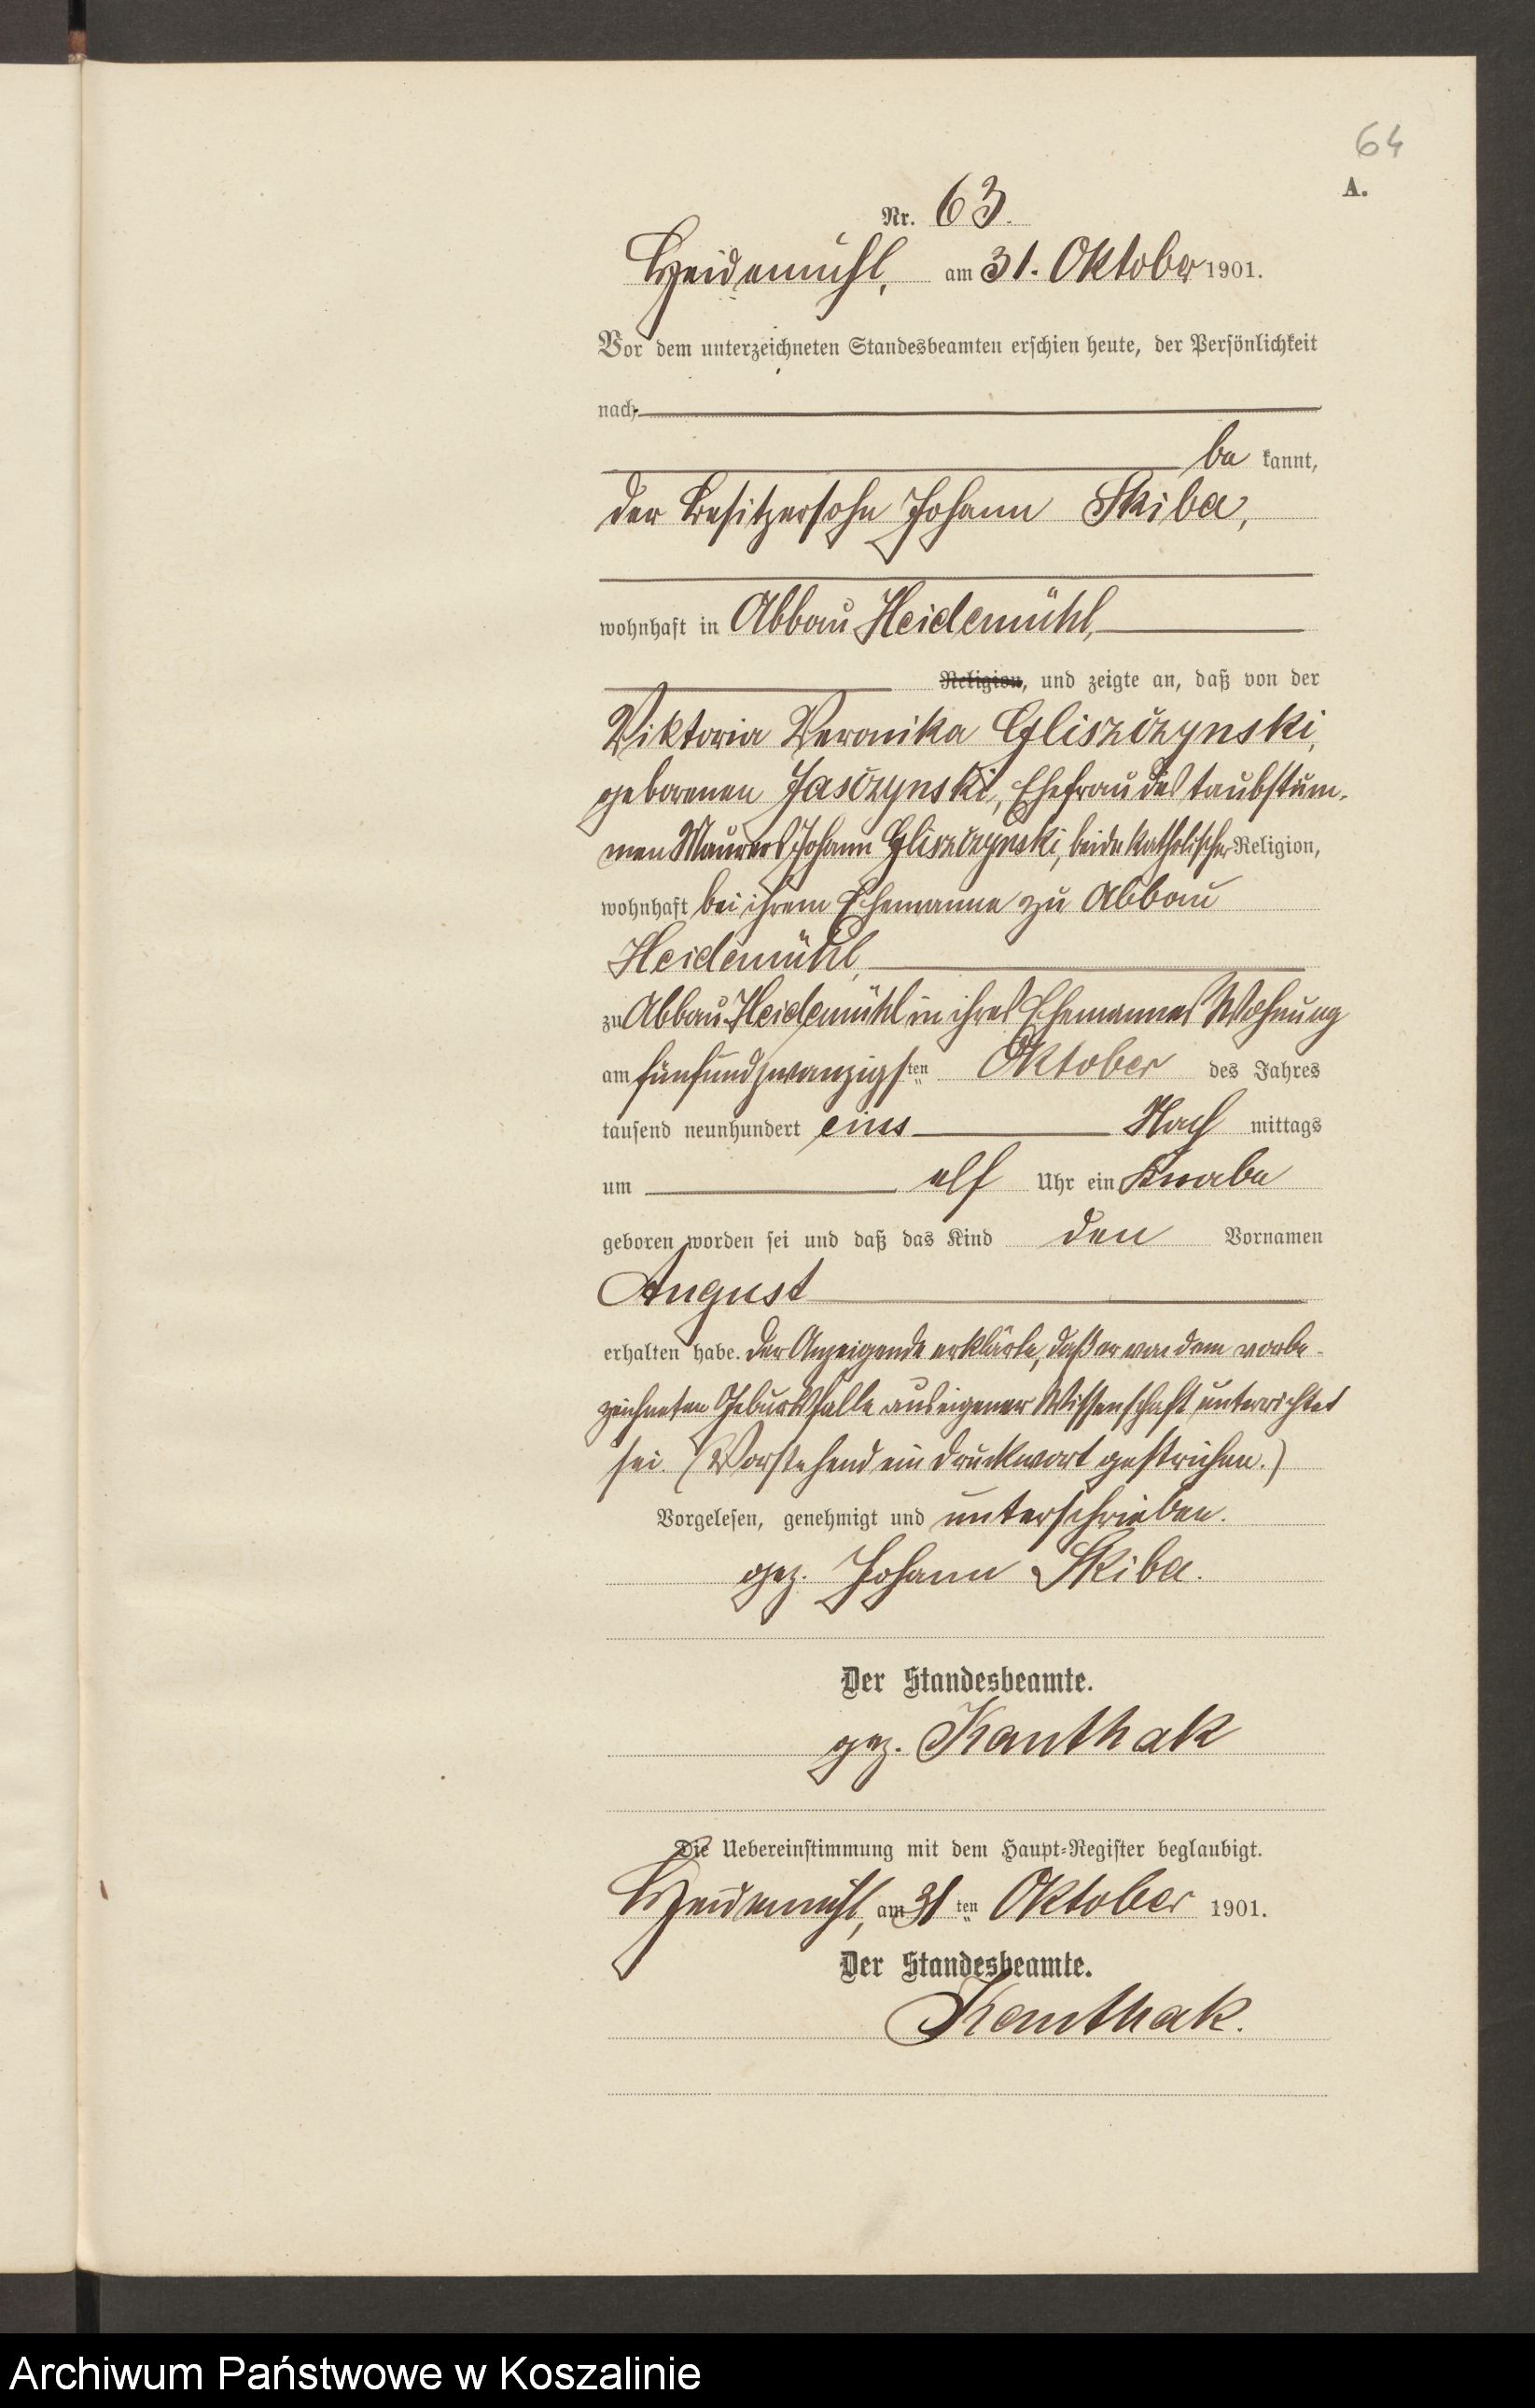 64
A.
Nr. 63.
Heidemühl, am 31. Oktober 1901.
Vor dem unterzeichneten Standesbeamten erschien heute, der Persönlichkeit
nach
be kannt,
der Besitzersohn Johann Skiba,
wohnhaft in Abbau Heidemühl,
Religion, und zeigte an, daß von der
Viktoria Veronika Gliszczynski,
geborenen Jasczynski, Ehefrau des taubstum-
men Maurers Johann Gliszczynski, beide katholischer Religion,
wohnhaft bei ihrem Ehemanne zu Abbau
Heidemühl,
zu Abbau Heidemühl in ihres Ehemannes Wohnung
am fünfundzwanzigsten Oktober des Jahres
tausend neunhundert eins Nach mittags
um elf Uhr ein Knabe
geboren worden sei und daß das Kind den Vornamen
August
erhalten habe. Der Anzeigende erklärte, daß er von dem vorbe-
zeichneten Geburtsfalle aus eigener Wissenschaft unterrichtet
sei. (Vorstehend ein Druckwort gestrichen.)
Vorgelesen, genehmigt und unterschrieben.
gez. Johann Skiba.
Der Standesbeamte.
gez. Kanthak
Die Uebereinstimmung mit dem Haupt-Register beglaubigt.
Heidemühl, am 31 ten Oktober 1901.
Der Standesbeamte.
Kanthak.
Archiwum Państwowe w Koszalinie